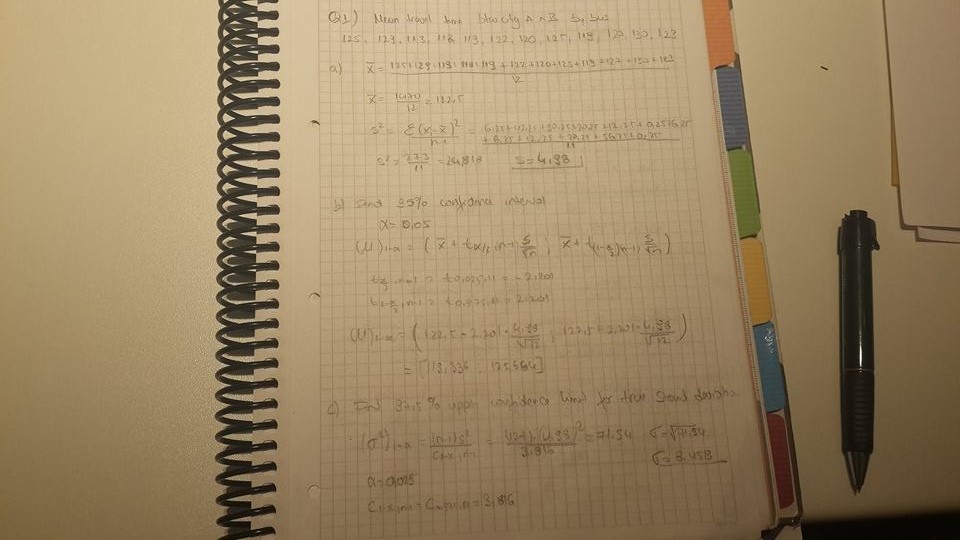 Q1) Mean travel time btw city A n B by bus
125, 129, 113, 118, 113, 122, 120, 125, 119, 127, 130, 123
a) x̄ = 125+129+113+118+ +122+120+125+119+127+130+123 / 12
x̄ = 1470/12 = 122,5
s² = Σ(xᵢ-x̄)² / n-1 = 6.25+42.25+ +12.25+0.25+6.25
+12.25+ +56.25+0.25 / 11
s² = 273/11 = 24,818 s = 4,98
b) 95% confidence interval
α = 0,05
(μ)1-α = ( x̄ + tα/2,(n-1) s/√n ; x̄ + t(1-α/2)(n-1) s/√n )
tα/2,n-1 = t0,025,11 = -2,201
t1-α/2,n-1 = t0,975,11 = 2,201
(μ)1-α = ( 122,5 - 2,201 · 4,98/√12 ; 122,5 + 2,201 · 4,98/√12 )
= [119,336 ; 125,664]
c) Find 97,5% upper confidence limit for true
(σ²)1-α = (n-1)s² / = (12-1).(4,98)² / 3,816 = 71,54 σ = √71,54
σ = 8,458
α = 0,025
= 3,816